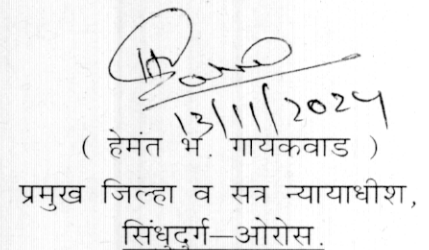 13/11/2024
( हेमंत भ. गायकवाड )
प्रमुख जिल्हा व सत्र न्यायाधीश,
सिंधुदुर्ग–ओरोस.